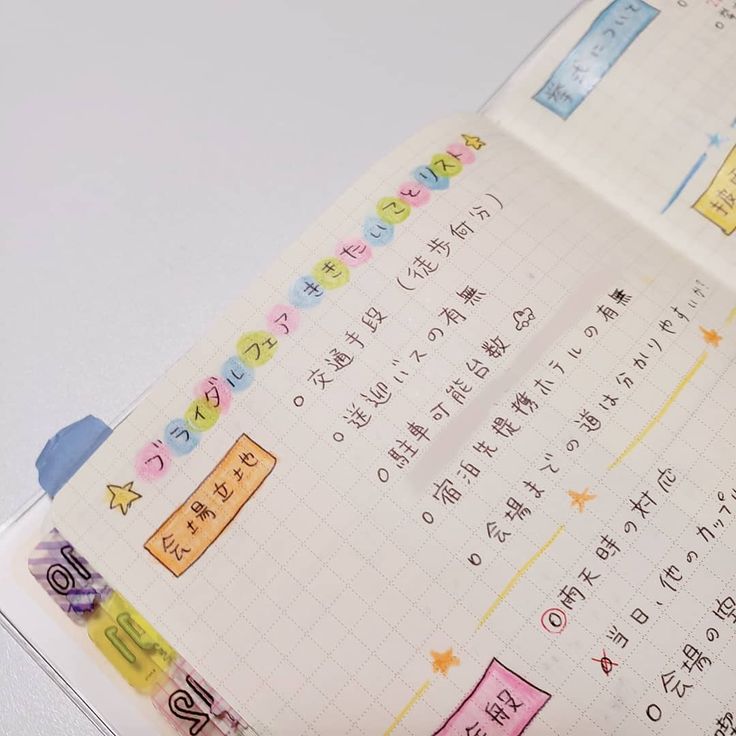 挙式について
ブライダルフェアききたいことリスト
会場立地
○ 交通手段 (徒歩何分)
○ 送迎バスの有無
○ 駐車可能台数
○ 宿泊先提携ホテルの有無
○ 会場までの道は分かりやすいか?
全般
○ 雨天時の対応
○ 当日、他のカップル
○ 会場の
10
11
12